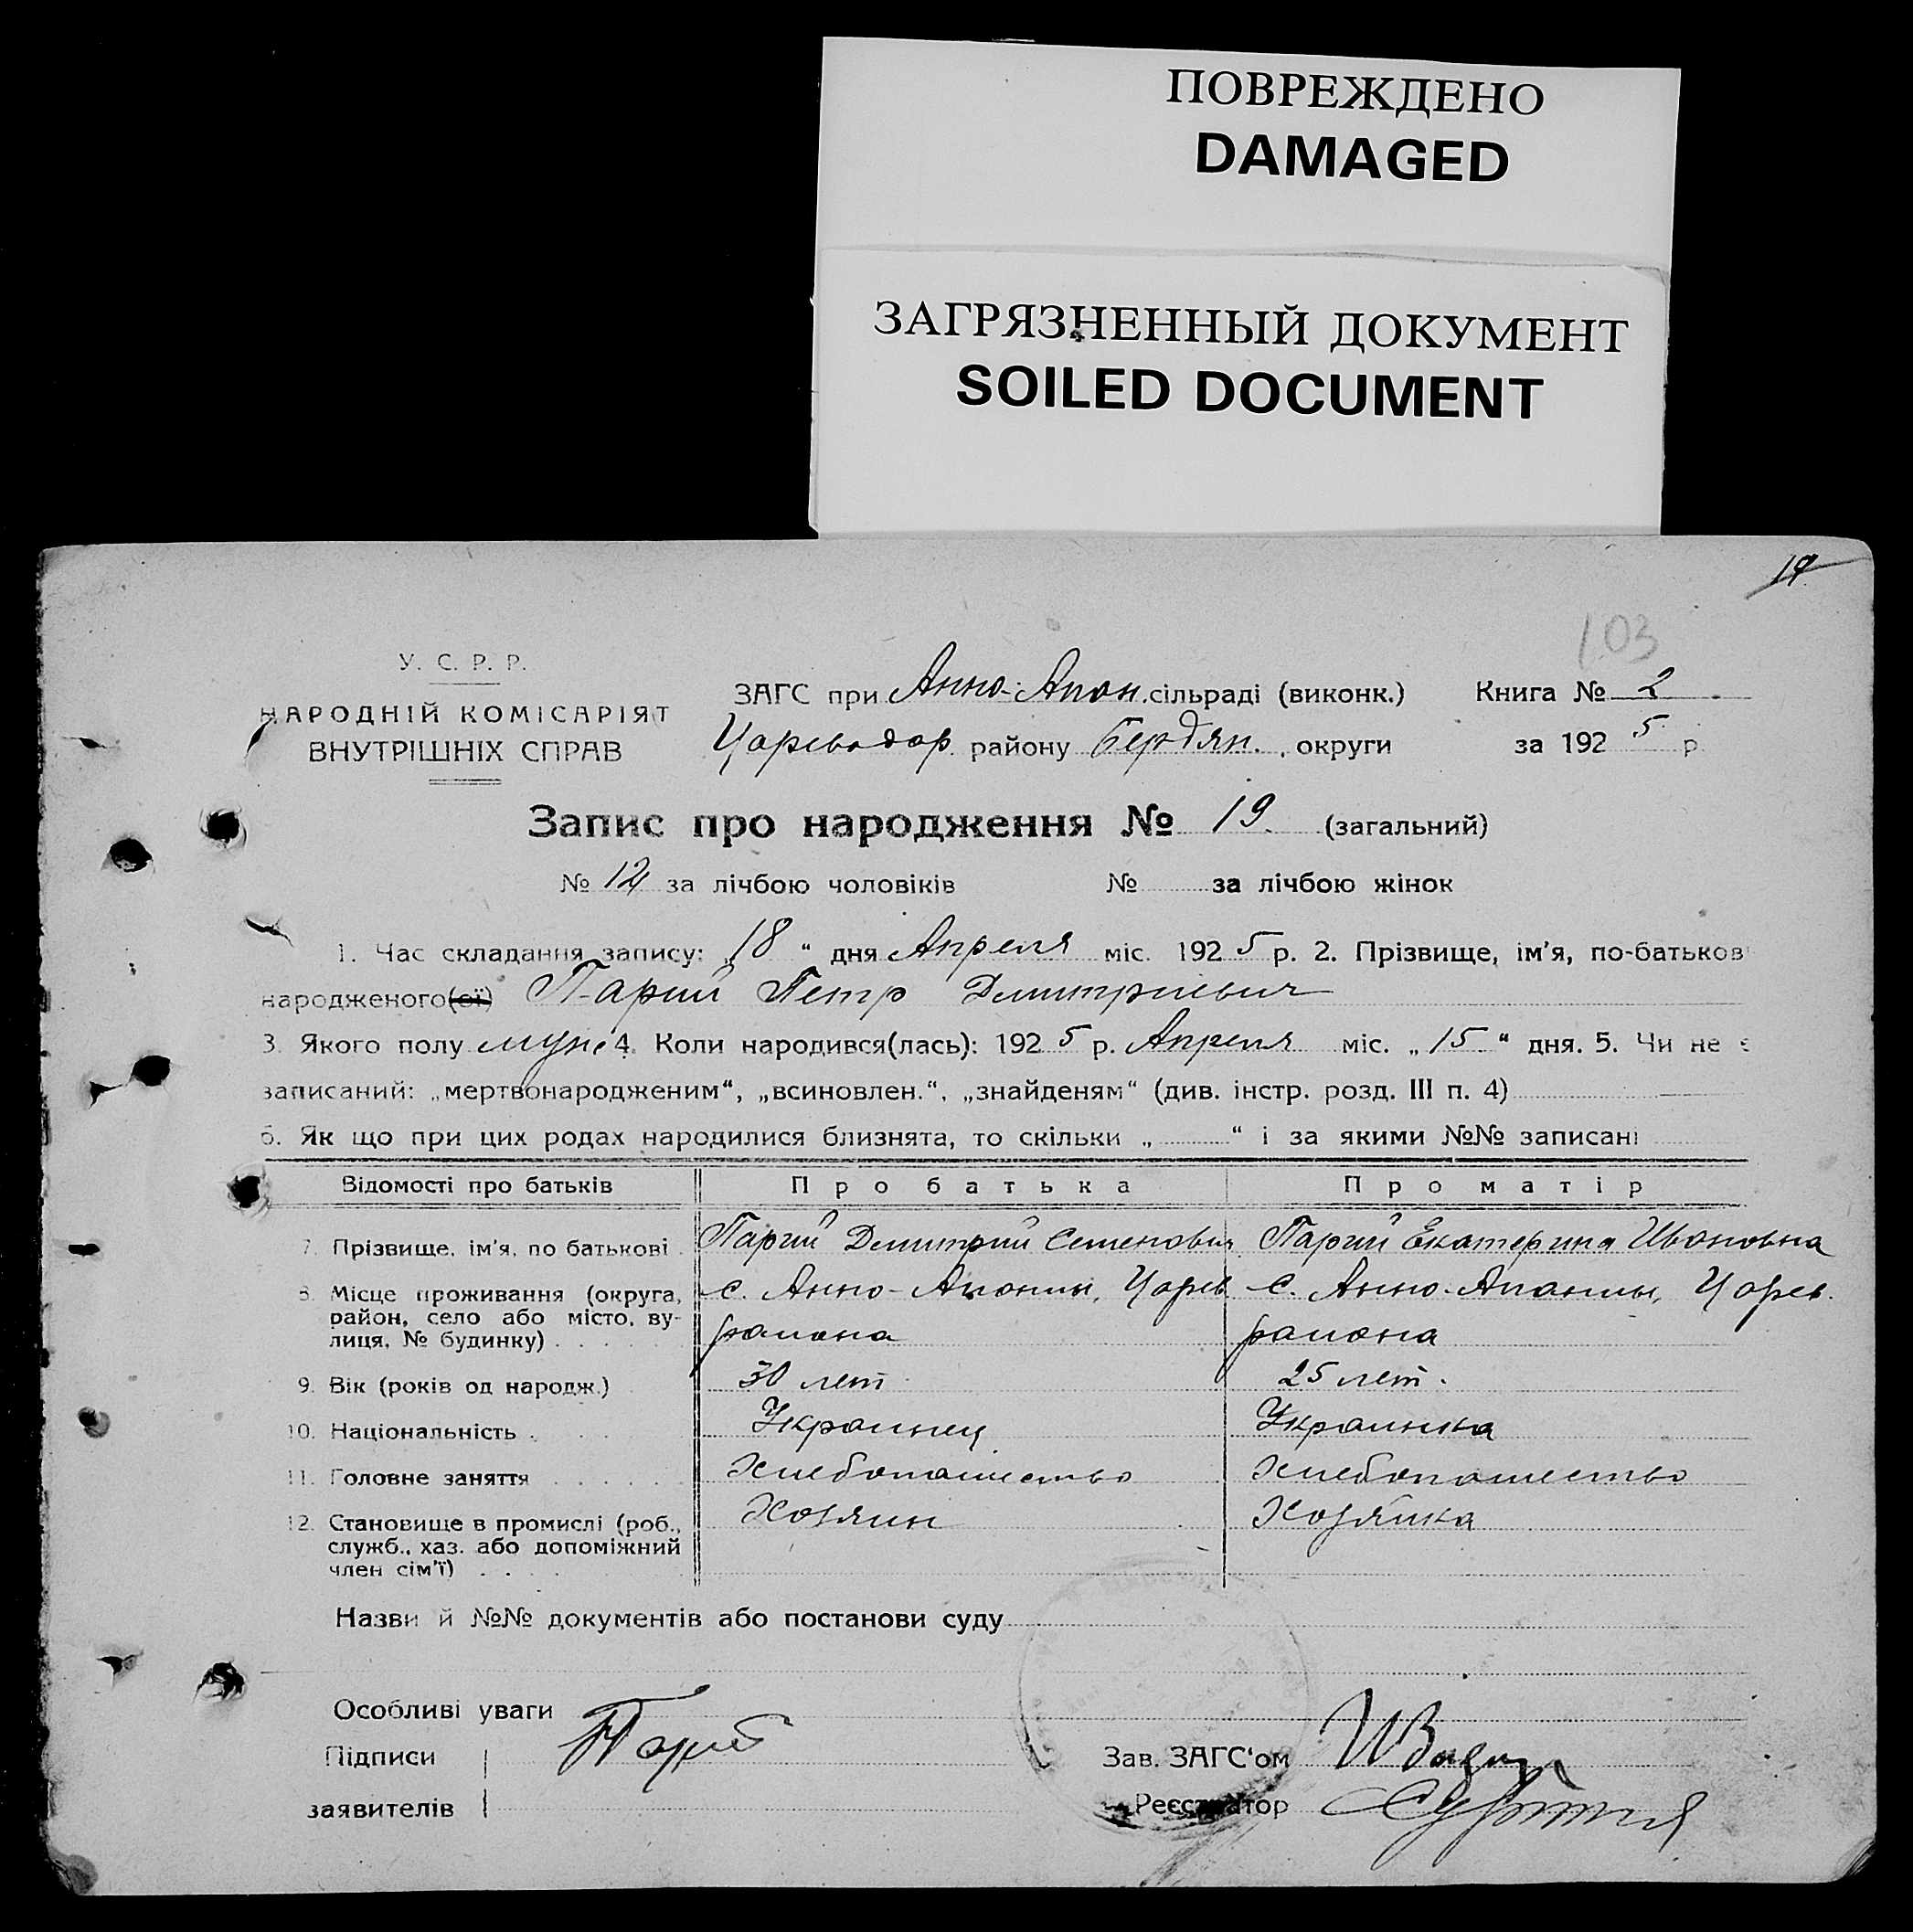 ПОВРЕЖДЕНО
DAMAGED
ЗАГРЯЗНЕННЫЙ ДОКУМЕНТ
SOILED DOCUMENT
19
103
У. С. Р. Р.
НАРОДНІЙ КОМІСАРІЯТ
ВНУТРІШНІХ СПРАВ
ЗАГС при Анно-Апон. сільраді (виконк.) Книга № 2
Цареводар. району Бердян. округи за 192 5 р
Запис про народження № 19. (загальний)
№ 12 за лічбою чоловіків № за лічбою жінок
1. Час складання запису: „18“ дня Апреля міс. 192 5 р. 2. Прізвище, ім'я, по-батьков
народженого(ої) Парий Петр Дмитриевич
3. Якого полу муж. 4. Коли народився(лась): 192 5 р. Апреля міс. „15“ дня. 5. Чи не є
записаний: „мертвонародженим“, „всиновлен.“, „знайденям“ (див. інстр. розд. III п. 4)
6. Як що при цих родах народилися близнята, то скільки „ “ і за якими №№ записані
Відомості про батьків Про батька Про матір
7. Прізвище, ім'я, по батькові Парий Дмитрий Семенович Парий Екатерина Ивановна
8. Місце проживання (округа, район, село або місто, ву-лиця, № будинку) с. Анно-Апонлы, Царев. района с. Анно-Апонлы, Царев. района
9. Вік (років од народж.) 30 лет 25 лет.
10. Національність Украинец Украинка
11. Головне заняття Хлебопашество Хлебопашество
12. Становище в промислі (роб., служб., хаз. або допоміжний член сім'ї) Хозяин Хозяйка
Назви й №№ документів або постанови суду
Особливі уваги
Підписи Парий Зав. ЗАГС'ом
заявителів Реєстратор